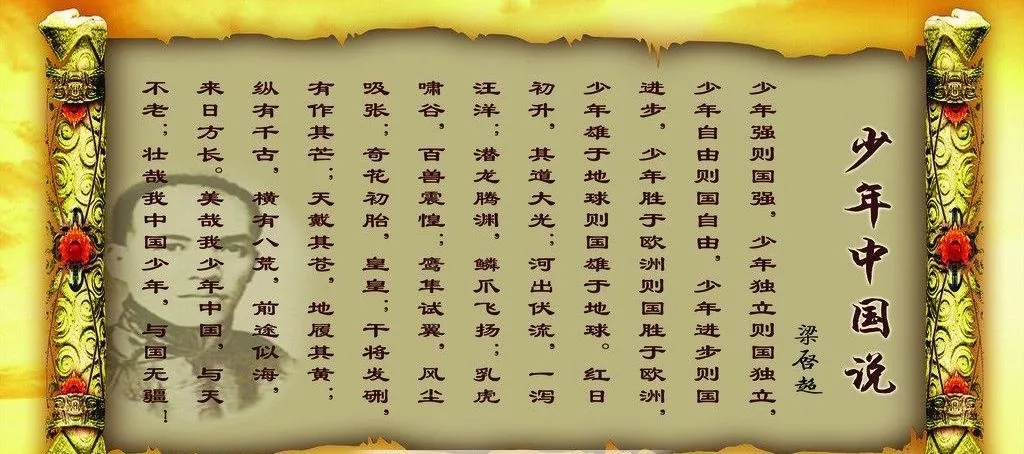 少年中国说
梁啓超
少年强则国强，少年独立则国独立，
少年自由则国自由，少年进步则国
进步，少年胜于欧洲则国胜于欧洲，
少年雄于地球则国雄于地球。红日
初升，其道大光；河出伏流，一泻
汪洋；潜龙腾渊，鳞爪飞扬；乳虎
啸谷，百兽震惶；鹰隼试翼，风尘
吸张；奇花初胎，皇皇；干将发硎，
有作其芒；天戴其苍，地履其黄；
纵有千古，横有八荒，前途似海，
来日方长。美哉我少年中国，与天
不老；壮哉我中国少年，与国无疆！